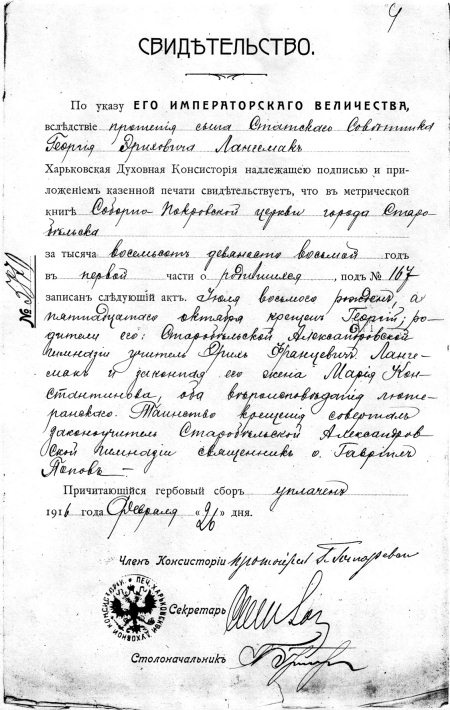 СВИДѢТЕЛЬСТВО.
По указу ЕГО ИМПЕРАТОРСКАГО ВЕЛИЧЕСТВА,
вслѣдствіе прошенія сына Статскаго Совѣтника
Георгія Эриховича Лангемакъ
Харьковская Духовная Консисторія надлежащею подписью и при-
ложеніемъ казенной печати свидѣтельствуетъ, что въ метрической
книгѣ Соборно-Покровской церкви города Старо-
бѣльска
за тысяча восемьсотъ девяносто восьмой годъ
въ первой части о родившихся, подъ № 167
записанъ слѣдующій актъ. Іюля восьмого рожденъ, а
пятнадцатаго октября крещенъ Георгій; ро-
дители его: Старобѣльской Александровской
гимназіи учитель Эрихъ Францевичъ Ланге-
макъ и законная его жена Марія Кон-
стантинова, оба вѣроисповѣданія люте-
ранскаго. Таинство крещенія совершалъ
законоучитель Старобѣльской Александров-
ской гимназіи священникъ о. Гавріилъ
Поповъ —
Причитающійся гербовый сборъ уплаченъ
1916 года Февраля « » дня.
Членъ Консисторіи протоіерей
Секретарь
Столоначальникъ